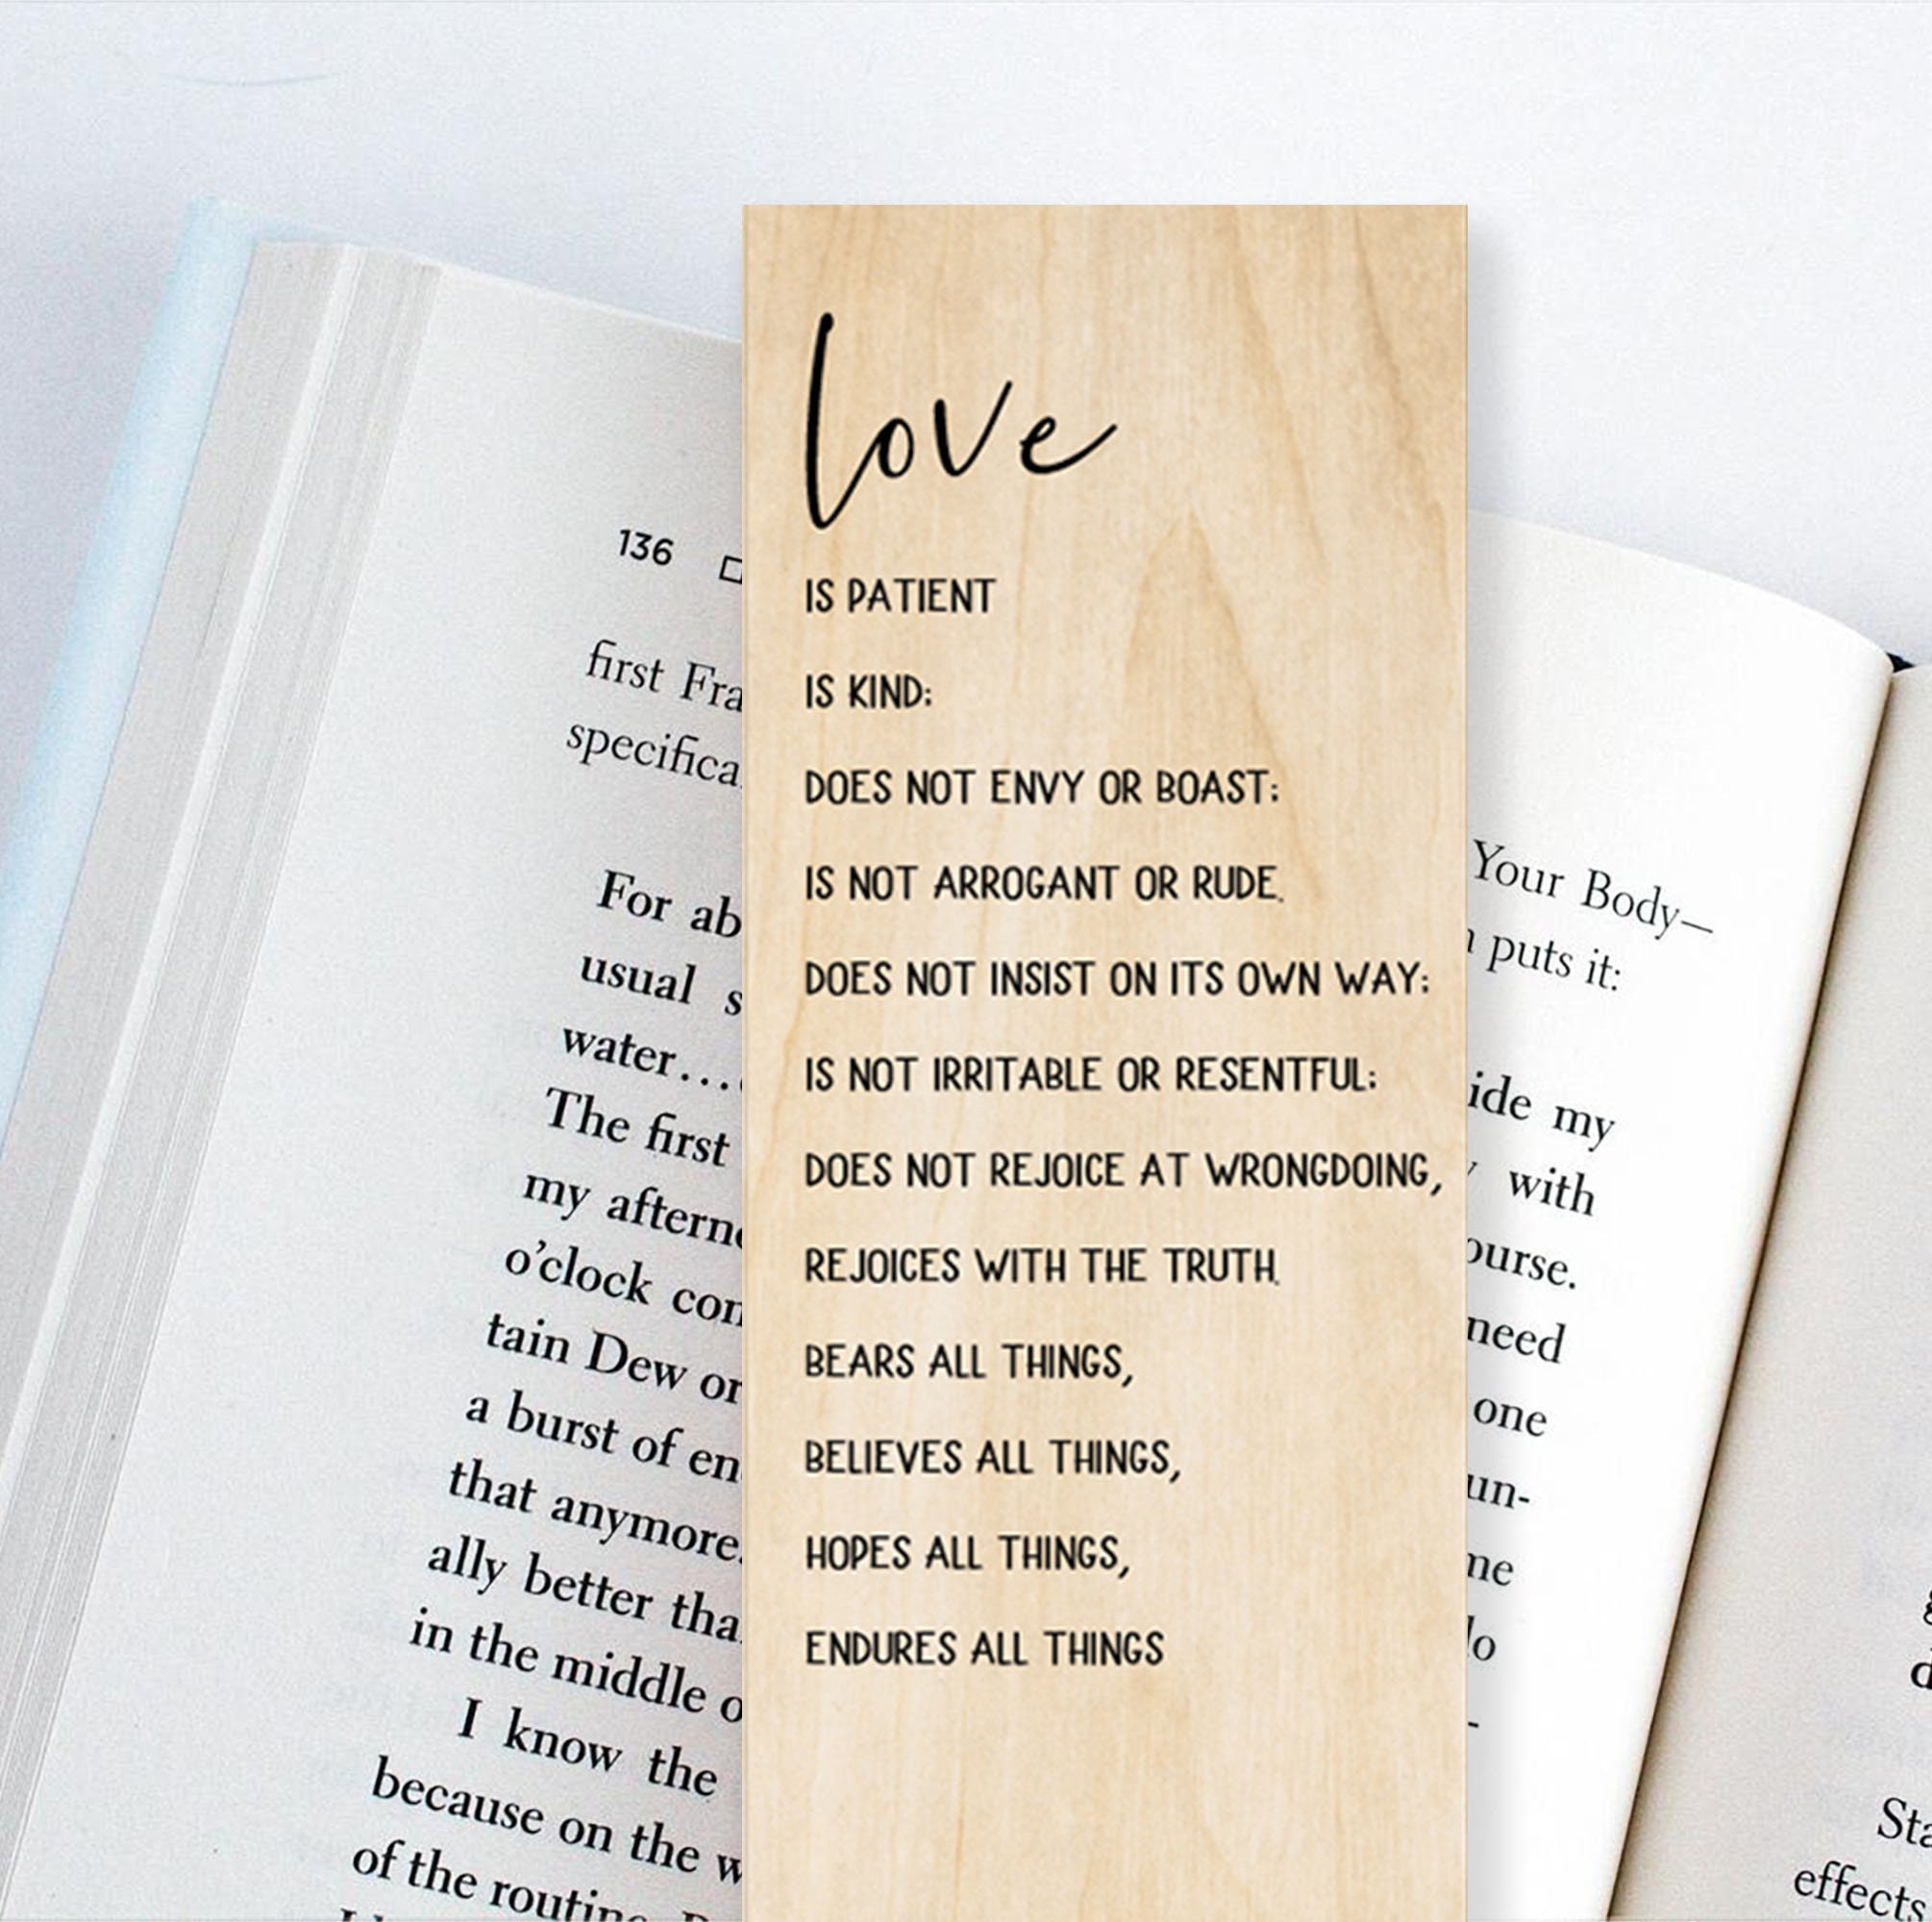 love
IS PATIENT
IS KIND;
DOES NOT ENVY OR BOAST;
IS NOT ARROGANT OR RUDE.
DOES NOT INSIST ON ITS OWN WAY;
IS NOT IRRITABLE OR RESENTFUL;
DOES NOT REJOICE AT WRONGDOING,
REJOICES WITH THE TRUTH.
BEARS ALL THINGS,
BELIEVES ALL THINGS,
HOPES ALL THINGS,
ENDURES ALL THINGS
136
first
For
usual
water....
The first
my
o'clock
tain Dew
a burst of
that anymore.
ally better
in the middle
I know the
because on the
of the
Your Body—
puts it:
my
with
need
one
effects